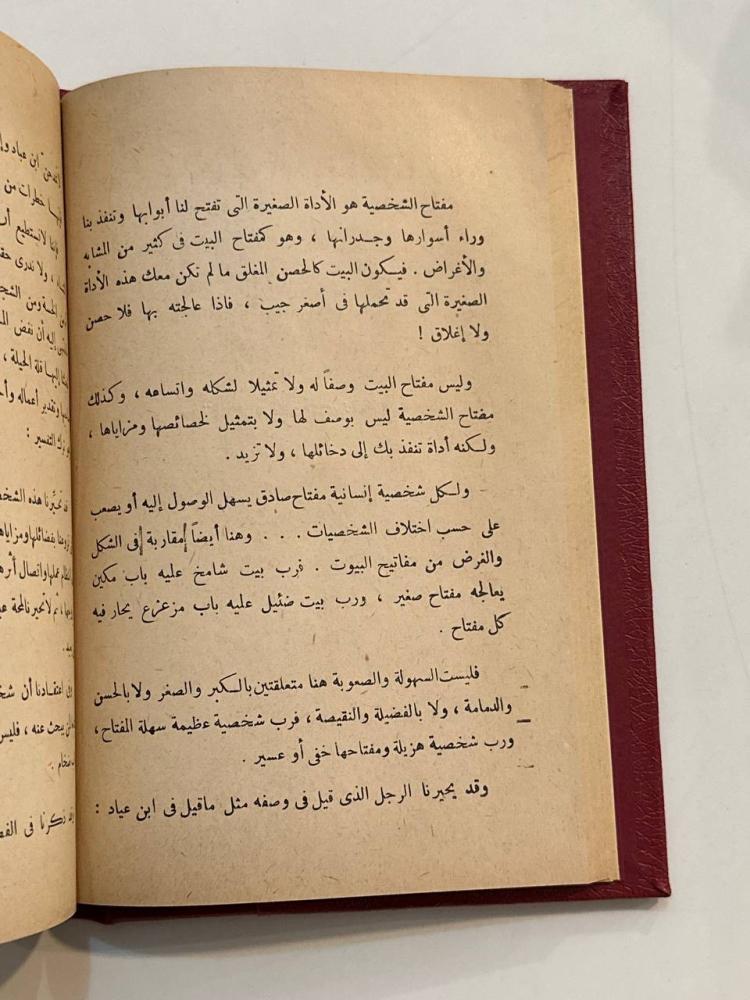 مفتاح الشخصية هو الأداة الصغيرة التى تفتح لنا أبوابها وتنفذ بنا
وراء أسوارها وجدرانها ، وهو كمفتاح البيت فى كثير من المشابه
والأغراض . فيكون البيت كالحصن المغلق ما لم تكن معك هذه الأداة
الصغيرة التى قد تحملها فى أصغر جيب ، فاذا عالجته بها فلا حصن
ولا إغلاق !
وليس مفتاح البيت وصفاً له ولا تمثيلا لشكله واتساعه ، وكذلك
مفتاح الشخصية ليس بوصف لها ولا بتمثيل لخصائصها ومزاياها ،
ولكنه أداة تنفذ بك إلى دخائلها ، ولا تزيد .
ولكل شخصية إنسانية مفتاح صادق يسهل الوصول إليه أو يصعب
على حسب اختلاف الشخصيات . . . وهنا أيضاً مقاربة فى الشكل
والغرض من مفاتيح البيوت . فرب بيت شامخ عليه باب مكين
يعالجه مفتاح صغير ، ورب بيت ضئيل عليه باب مزعزع يحار فيه
كل مفتاح .
فليست السهولة والصعوبة هنا متعلقتين بالكبر والصغر ولا بالحسن
والدمامة ، ولا بالفضيلة والنقيصة ، فرب شخصية عظيمة سهلة المفتاح ،
ورب شخصية هزيلة ومفتاحها خفى أو عسير .
وقد يحيرنا الرجل الذى قيل فى وصفه مثل ماقيل فى ابن عياد :
ابن عباد
خطرات من
لانستطيع
ولا ندرى
ومن
إليه أن نفض
قلة الحيلة ،
وتقدير أعماله
التفسير :
هذه
بفضائلها
عملها واتصال
ثم لا تحيرنا لمحة
اعتقادنا أن
يبحث عنه ، فليس
ذكرنا فى